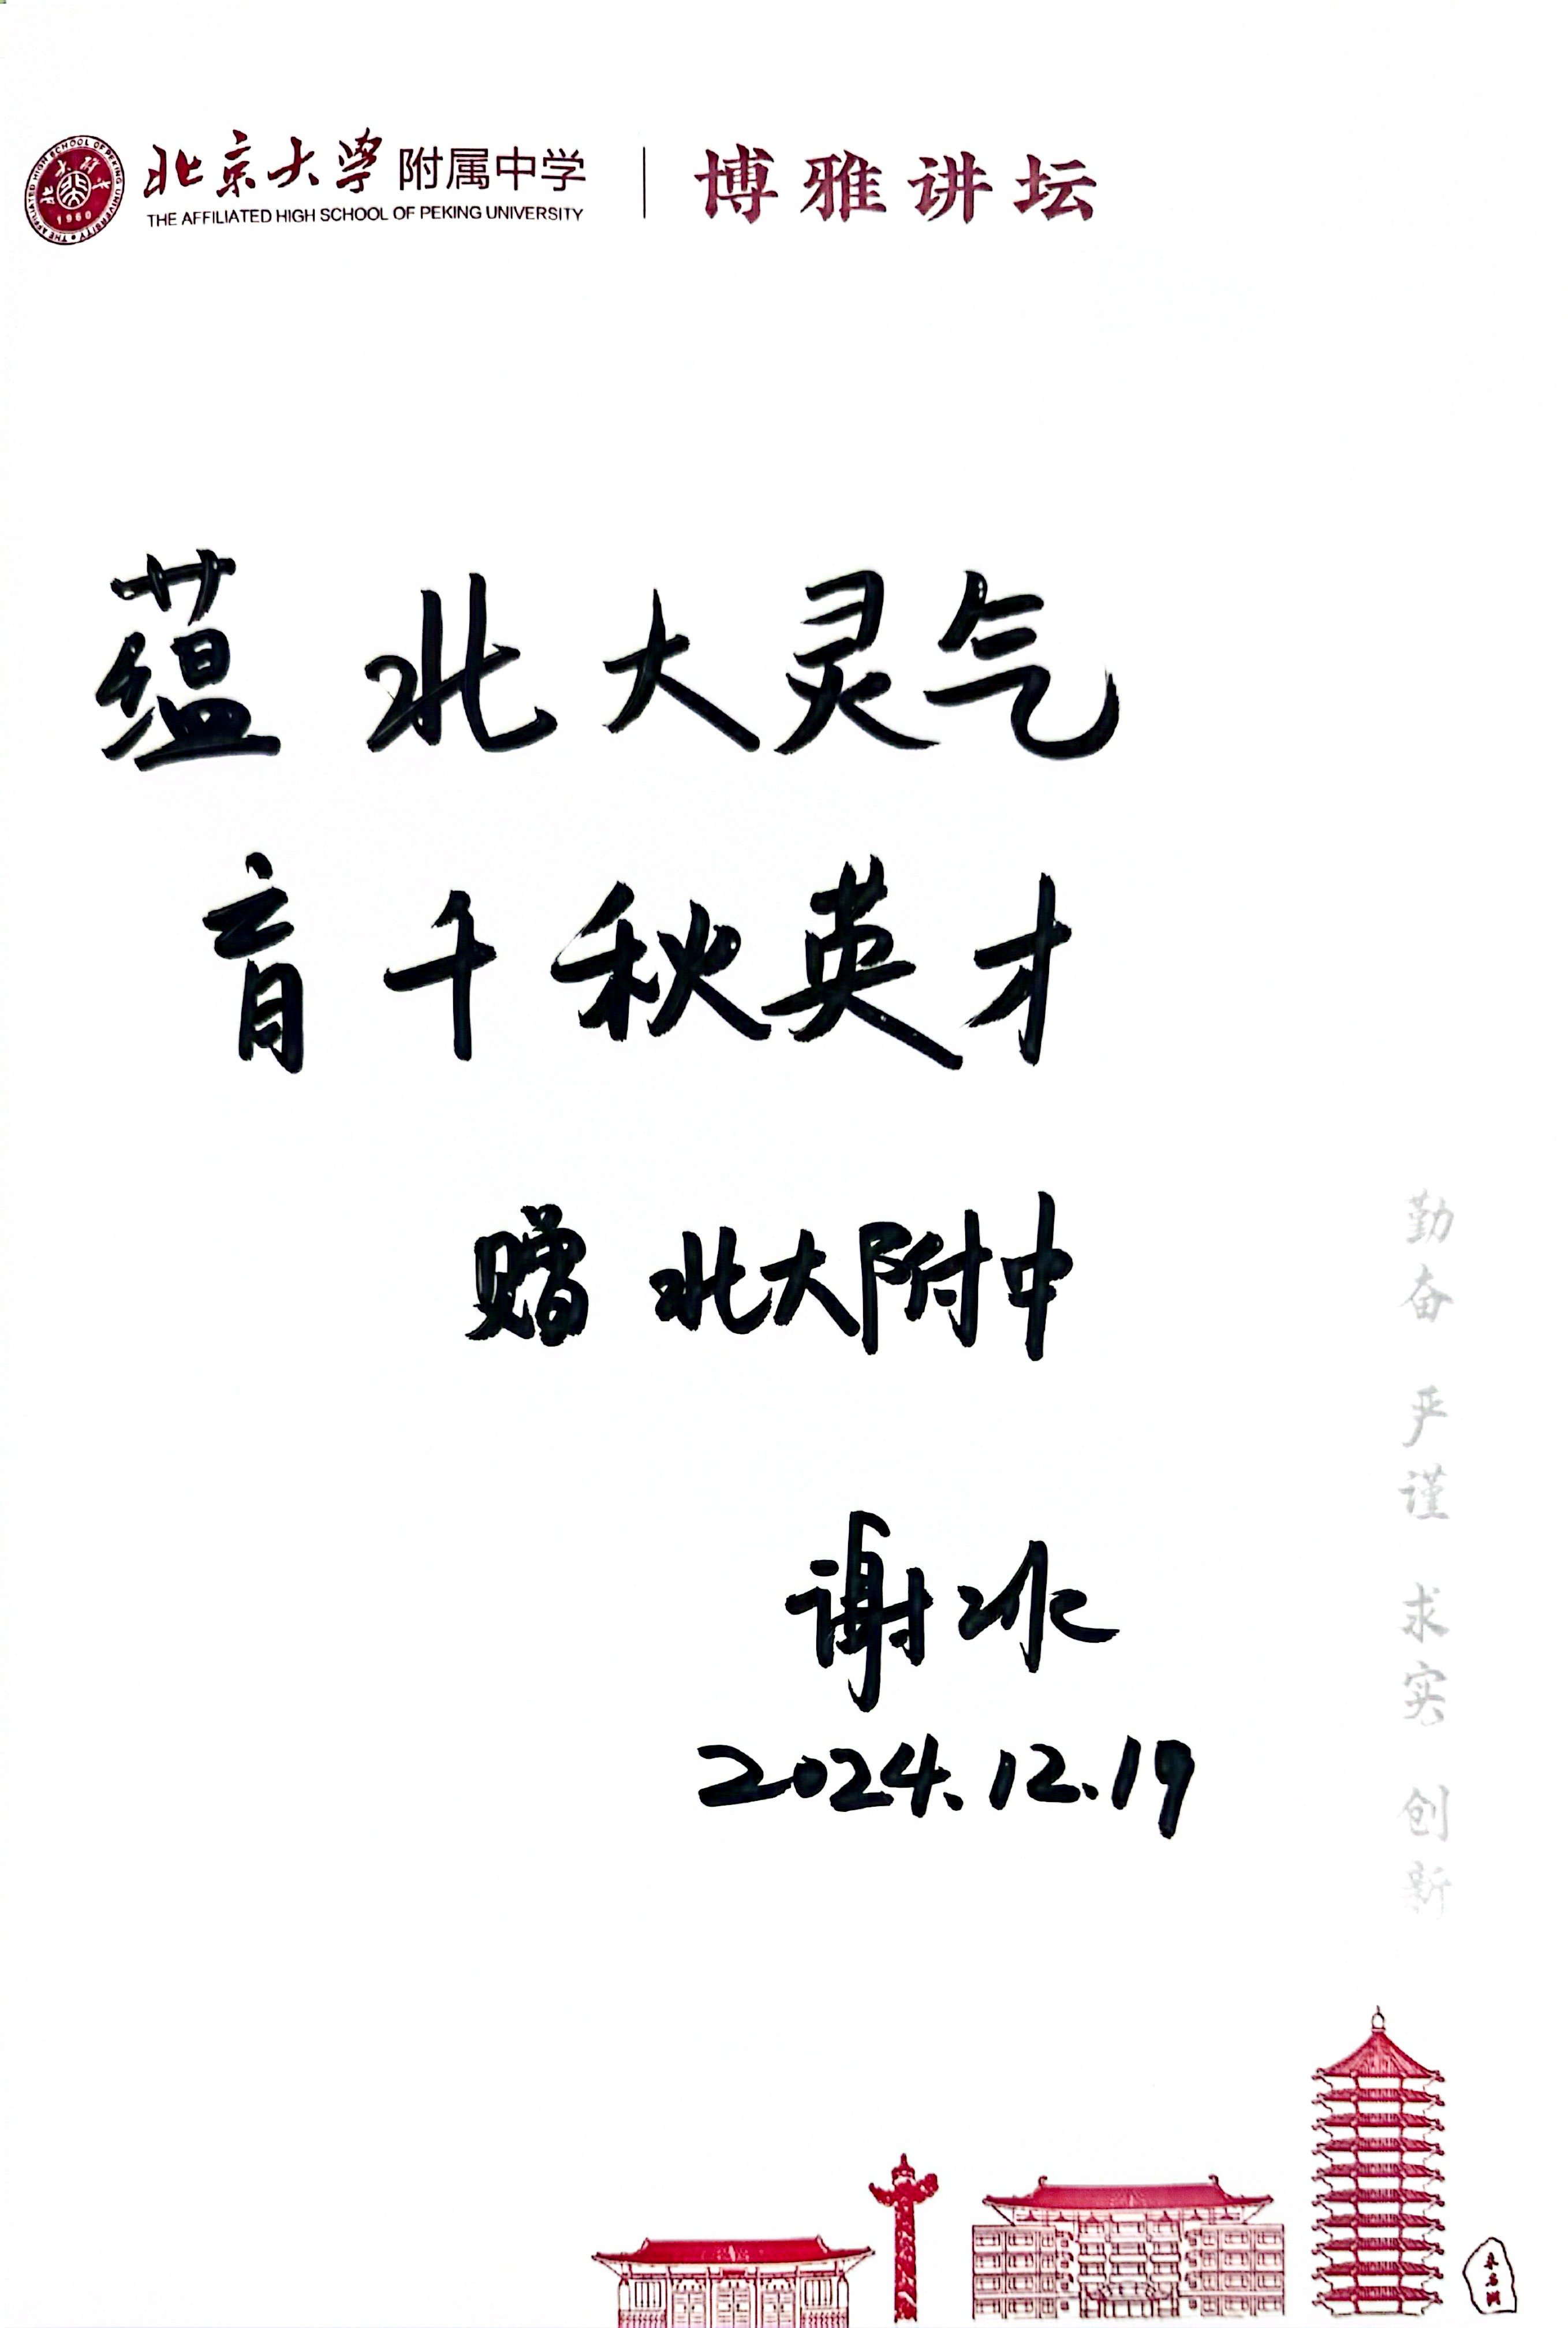 北京大学附属中学
THE AFFILIATED HIGH SCHOOL OF PEKING UNIVERSITY
博雅讲坛
蕴北大灵气
育千秋英才
赠 北大附中
谢冰
2024.12.19
勤奋 严谨 求实 创新
未名湖
1960